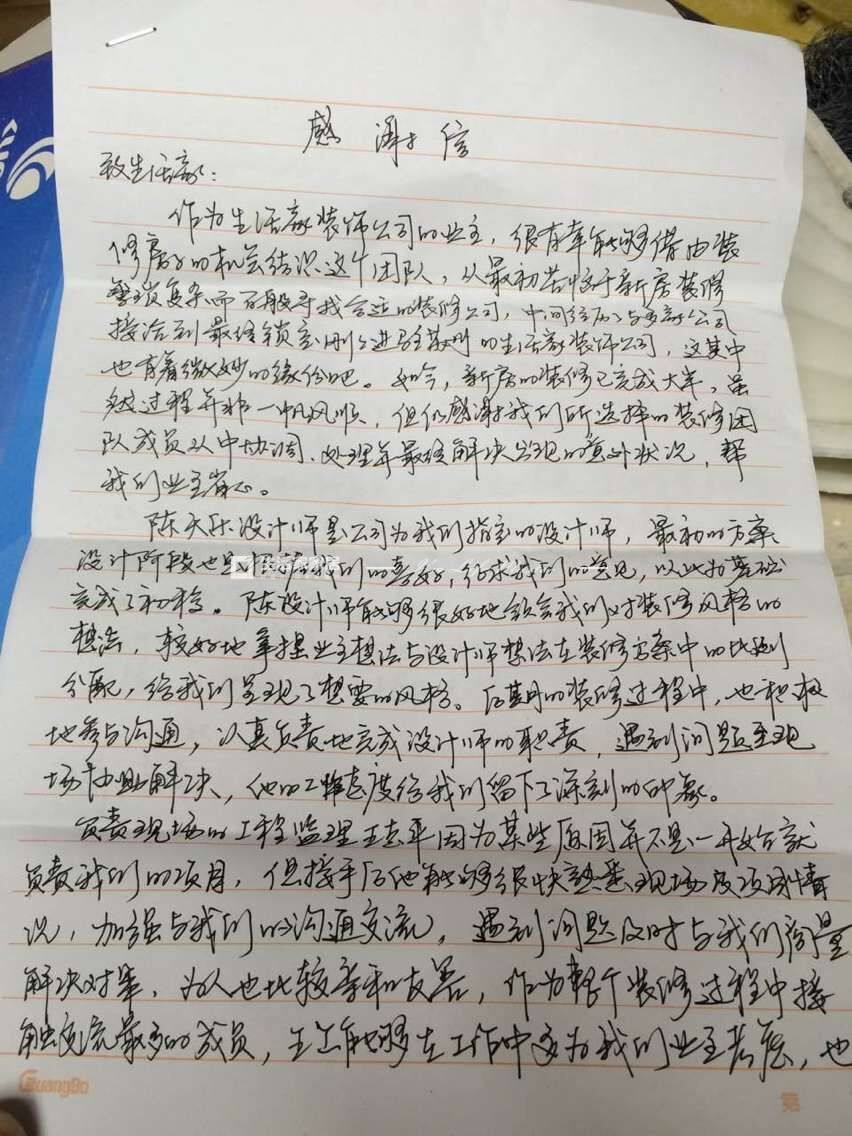 感谢信
致生活家：
作为生活家装饰公司的业主，很有幸能够借由装
修房子的机会结识这个团队，从最初苦恼于新房装修
繁琐复杂而百般寻找合适的装修公司，中间经历了与多家公司
接洽到最终锁定刚刚进驻苏州的生活家装饰公司，这其中
也有着微妙的缘份吧。如今，新房的装修已完成大半，虽
然过程并非一帆风顺，但仍感谢我们所选择的装修团
队成员从中协调、处理并最终解决出现的意外状况，帮
我们业主省心。
陈天乐设计师是公司为我们指定的设计师，最初的方案
设计阶段也是我们的喜好，征求我们的意见，以此为基础
完成了初稿。陈设计师能够很好地领会我们对装修风格的
想法，较好地掌握业主想法与设计师想法在装修方案中的比例
分配，给我们呈现了想要的风格。后期的装修过程中，也积极
地参与沟通，认真负责地完成设计师的职责，遇到问题至现
场协助解决，他的工作态度给我们留下了深刻的印象。
负责现场的工程监理王志平因为某些原因并不是一开始就
负责我们的项目，但接手后他能够很快熟悉现场及项目情
况，加强与我们的沟通交流，遇到问题及时与我们商量
解决对策，为人也比较亲和友善，作为整个装修过程中接
触交流最多的成员，王工能够在工作中多为我们业主考虑，也
GuangBo
第